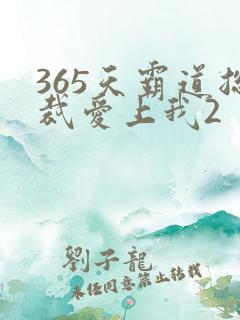 365天霸道总
裁爱上我2
劉子龍
未经同意禁止转载